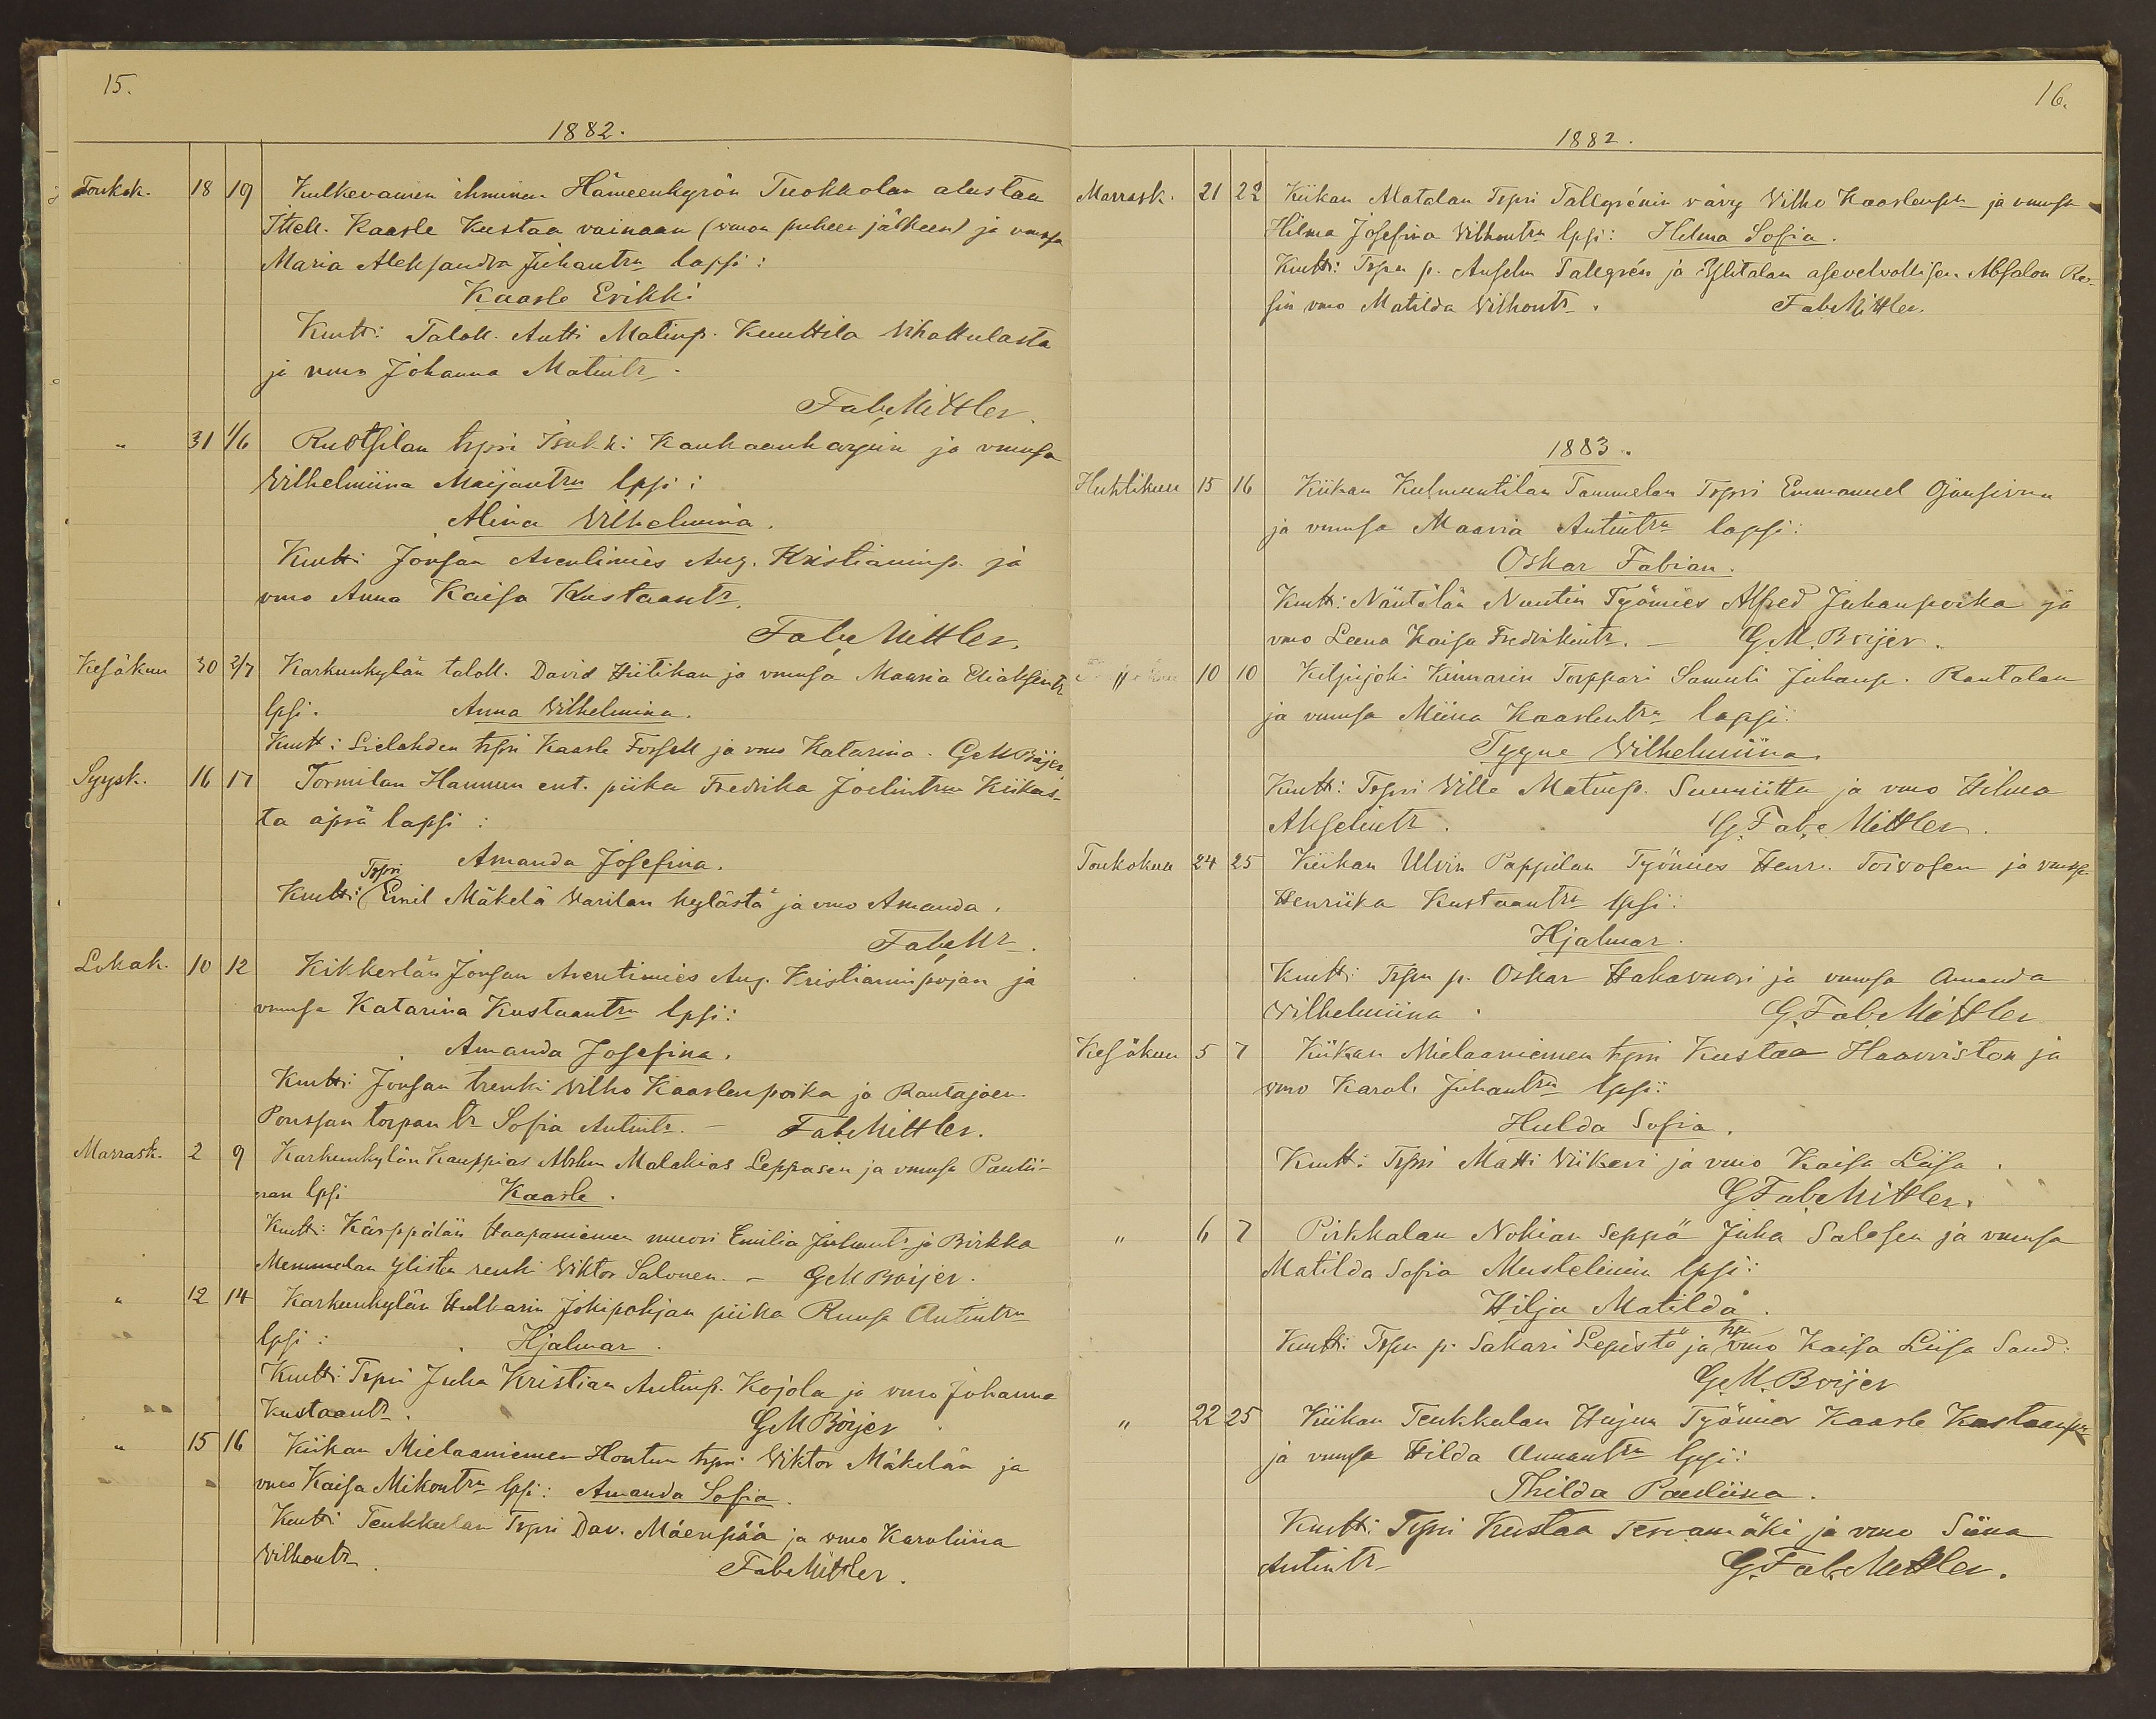 15.
1882.
Toukok. 18 19 Kulkevainen ihminen Hämeenkyrön Tuokkolan alustan
Ittell. Kaarle Kustaa vainaan (vmon puheen jälkeen) ja vmonsa
Maria Aleksandra Juhantrn lapsi:
Kaarle Erikki
Kmtti: Talok. Antti Matinp. Kuuttila Vihattulasta
ja vmo Johanna Matintr.
Fab. Mittler.
" 31 1/6 Ruotsilan trpri Isakki Kauhaanharjun ja vmonsa
Vilhelmiina Maijantrn lpsi:
Alina Vilhelmina.
Kmtti Jonsan Arentimies Aug. Kristianinp. ja
vmo Anna Kaisa Kustaantr.
Fab. Mittler.
Kesäkuu 30 2/7 Karhunkylän talok. David Hiitikan ja vmonsa Maria Eliaksentr
lpsi. Anna Vilhelmina.
Kmtt: Sielahden trpri Kaarle Forsell ja vmo Katarina. G M Böijer
Syysk. 16 17 Tormilan Hannun ent. piika Fredrika Joelintrn Kiikas-
ta äpärä lapsi:
Amanda Josefina.
Trpri
Kmtti: Emil Mäkelä Varilan kylästä ja vmo Amanda.
Fab. Mr.
Lokak. 10 12 Kikkerlän Jonsan Arentimies Aug. Kristianinpojan ja
vmonsa Katarina Kustaantrn lpsi:
Amanda Josefina.
Kmtti Jonsan trenki Vilho Kaarlenpoika ja Rautajoen
Ponssan torpan tr Sofia Antintr. — Fab. Mittler.
Marrask. 2 9 Karhunkylän Kauppias Abrhm Malakias Leppasen ja vmonsa Paulii-
nan lpsi Kaarle.
Kmtti: Kärppälän Haapaniemen muori Emilia Juhantr ja Birkka
Memmelan Ylisten renki Viktor Salonen. — G M Böijer.
" 12 14 Karhunkylän Hulkarin Jokipohjan piika Ruusa Antintrn
lpsi: Hjalmar.
Kmtti: Trpri Juha Kristian Antinp. Kojola ja vmo Johanna
Kustaantr. G M Böijer
" 15 16 Kiikan Mielaaniemen Hontun trpri Viktor Mäkelän ja
vmo Kaisa Mikontrn lpsi: Amanda Sofia.
Kmtti Teukkulan Trpri Dav. Mäenpää ja vmo Karoliina
Vilhontr. Fab. Mittler.
16.
1882.
Marrask. 21 22 Kiikan Alatalan Trpri Tallgrénin vävy Vilho Kaarlenpn ja vmonsa
Hilma Josefina Vilhontrn lpsi: Helma Sofia.
Kmtti: Trprn p. Anselm Tallgrén ja Ylitalan asevelvollisen Absalon Ro-
sin vmo Matilda Vilhontr. Fab. Mittler.
1883.
Huhtikuu 15 16 Kiikan Kulmuntilan Tammelan Trpri Emmanuel Ojansivun
ja vmonsa Maaria Antintrn lapsi:
Oskar Fabian.
Kmtti: Näntölän Nuutin Työmies Alfred Juhanpoika ja
vmo Leena Kaisa Fredrikintr. — G. M. Böijer.
" 10 10 Kilpijoki Kinnarin Torppari Samuli Juhanp. Rantalan
ja vmonsa Miina Kaarlentrn lapsi:
Tyyne Vilhelmiina
Kmtti: Trpri Ville Matinp. Suuniitta ja vmo Hilma
Akselintr. G. Fab. Mittler.
Toukokuu 24 25 Kiikan Ulvin Pappilan Työmies Henr. Toivosen ja vmonsa
Henriika Kustaantrn lpsi:
Hjalmar.
Kmtti: Trprn p. Oskar Hakavuori ja vmonsa Amanda
Vilhelmiina. G. Fab. Mittler
Kesäkuu 5 7 Kiikan Mielaaniemen trpri Kustaa Haaviston ja
vmo Karol. Juhantrn lpsi:
Hulda Sofia.
Kmtti: Trpri Matti Viikeri ja vmo Kaisa Liisa.
G. Fab. Mittler.
" 6 7 Pirkkalan Nokian Seppä Juha Salosen ja vmonsa
Matilda Sofia Mustelinin lpsi:
Hilja Matilda.
Kmtti: Trprn p. Sakari Lepistö ja trprn vmo Kaisa Liisa Sand:
G. M. Böijer
" 22 25 Kiikan Teukkulan Heijun Työmies Kaarle Kustaanpn
ja vmonsa Hilda Annantrn lpsi:
Thilda Pauliina.
Kmtti: Trpri Kustaa Tervamäki ja vmo Siina
Antintr G. Fab. Mittler.